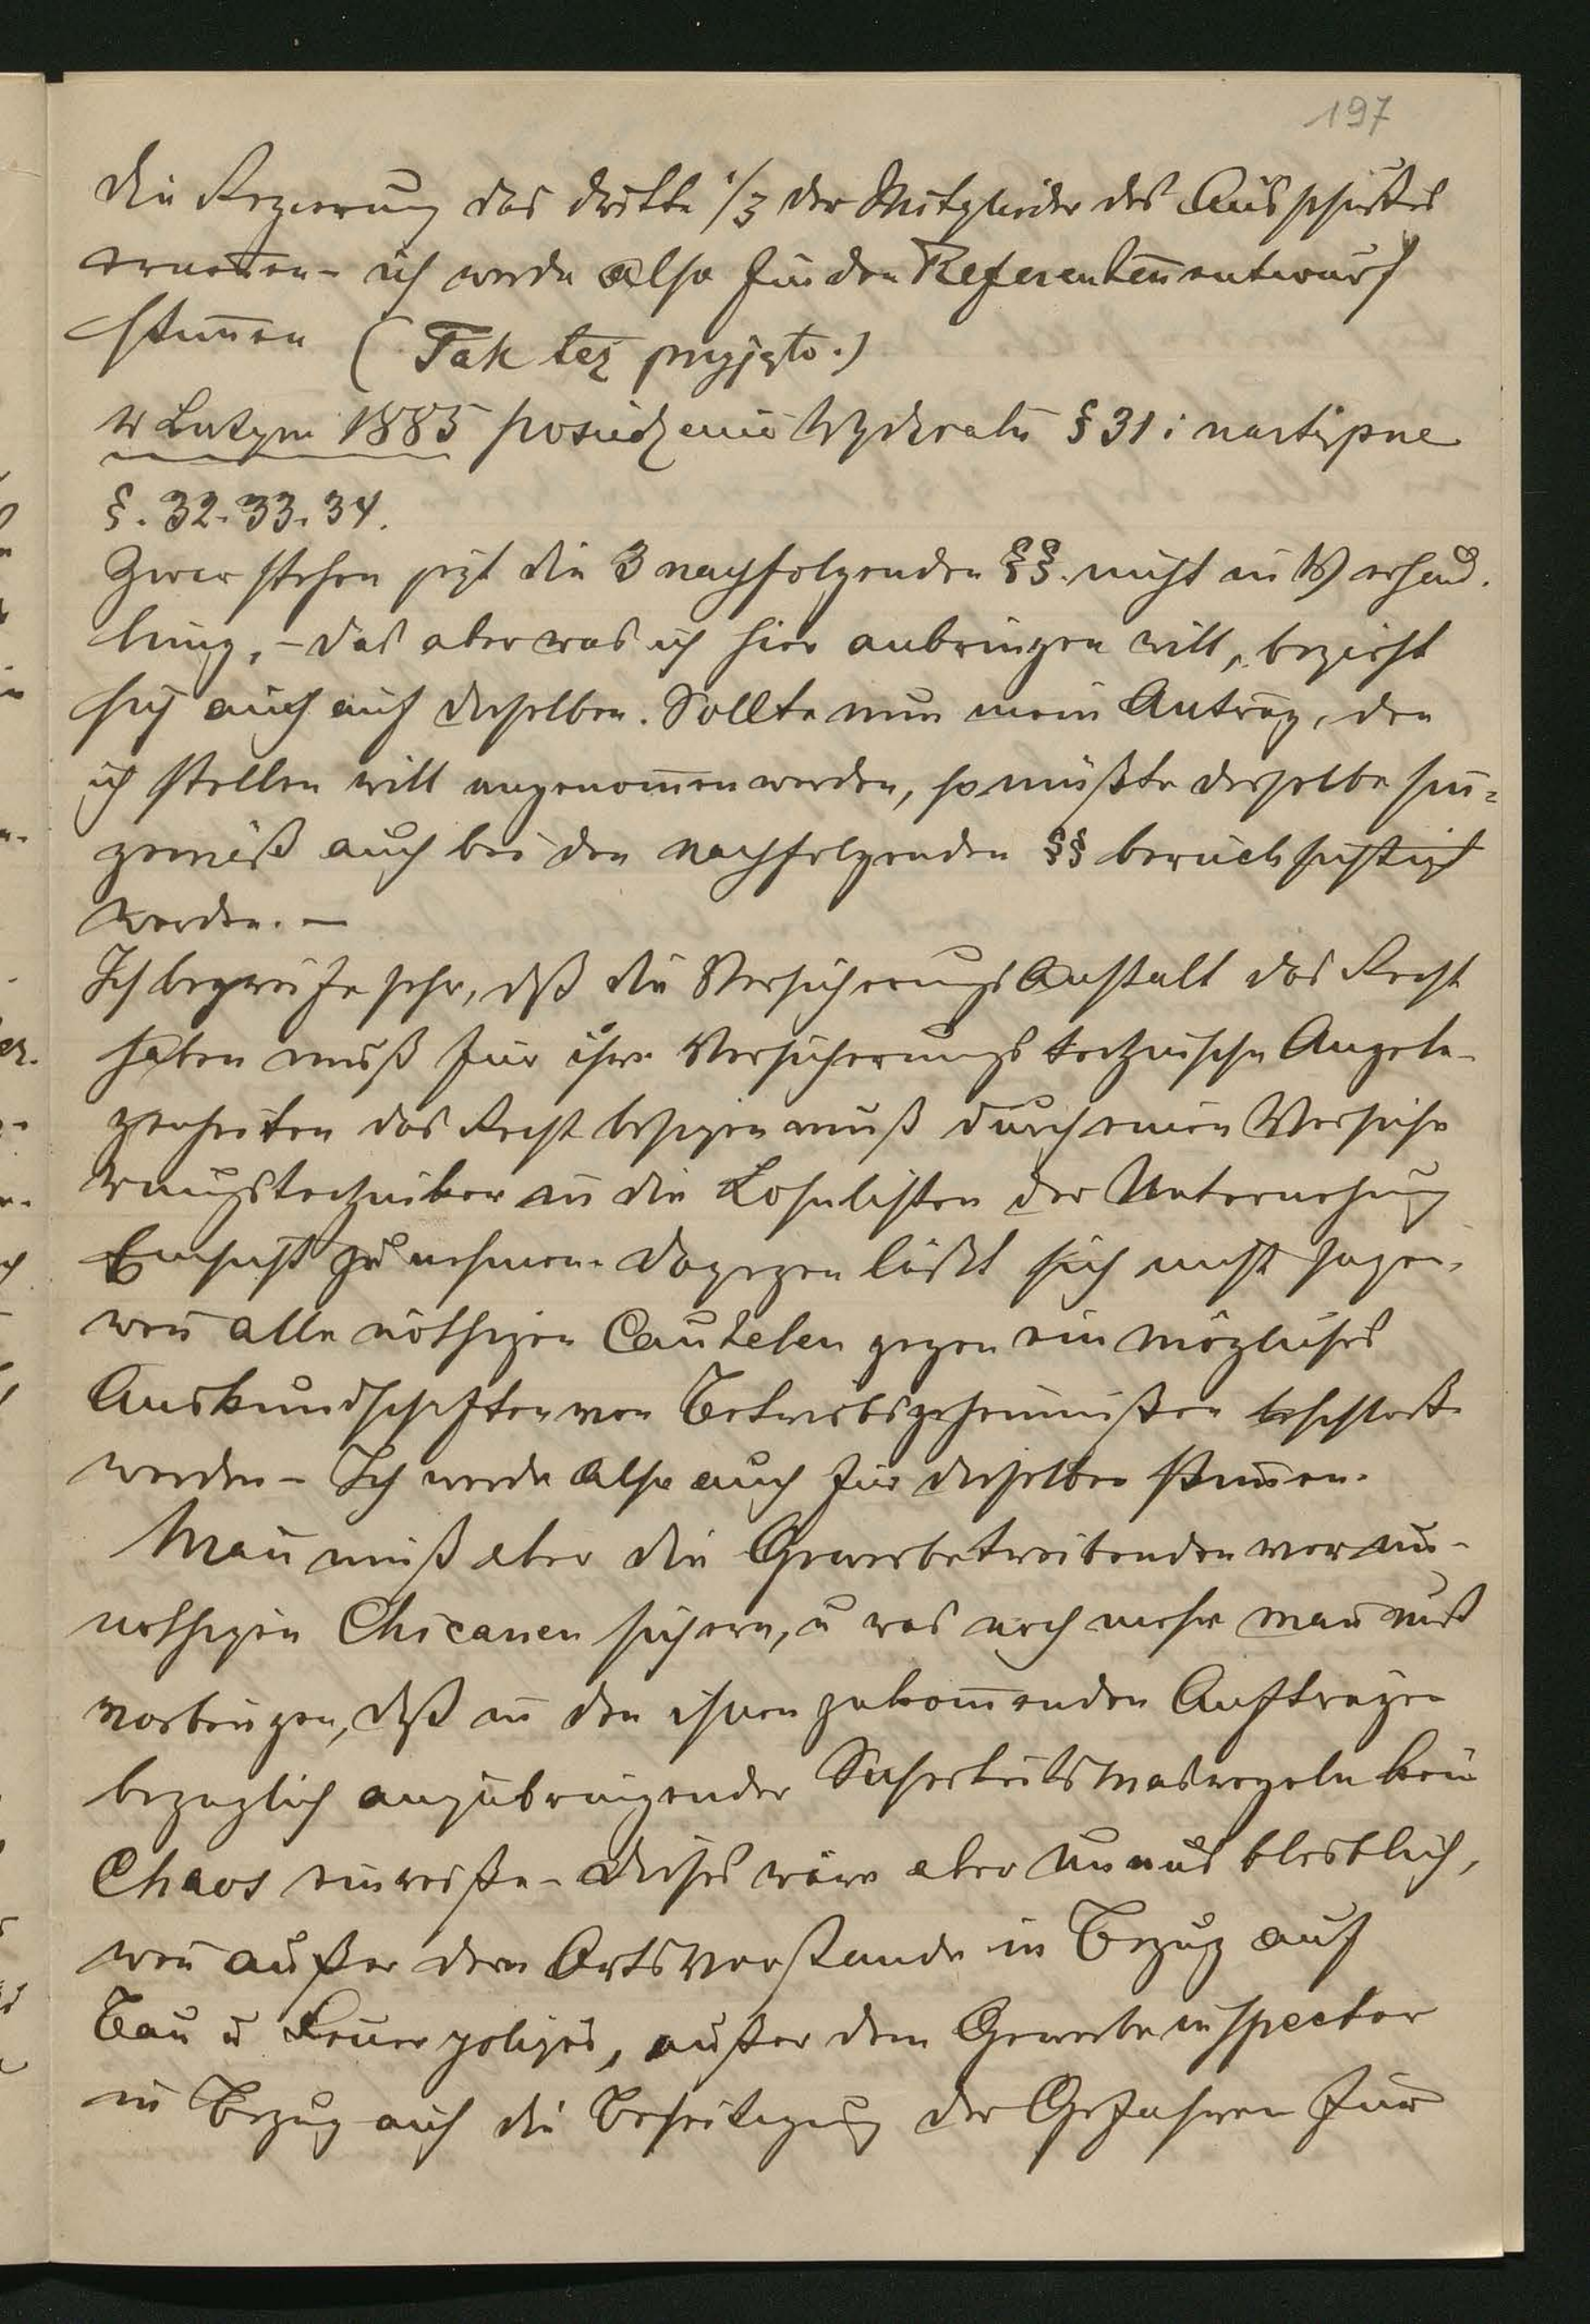 197
die Regierung das dritte 1/3 der Mitglieder des Ausschußes
ernenen – ich werde also für den Referenteneentwurf
stim̄en (Tak też przyjęto.)
W Lutym 1885 posiedzenie Wydziału § 31 i następne
§. 32. 33. 34.
Zwar stehen jezt die 3 nachfolgenden §§. nicht in Verhand.
lung, – das aber was ich hier anbringen will, bezieht
sich auch auf dieselben. Sollte nun mein Antrag, den
ich stellen will angenom̄en werden, so müßte derselbe sin̄=
gemäß auch bei den nachfolgenden §§ berücksichtigt
werden. –
Ich begreife sehr, dß die Versicherungs Anstalt das Recht
haben muß für ihre Versicherungs technische Angele-
genheiten das Recht besizen muß durch einen Versiche
rungstechniker in die Lohnlisten der Unternehmung
Einsicht zu nehmen. Dagegen läßt sich nicht sagen,
wen̄ alle nöthigen Cautelen gegen ein mögliches
Auskundschaften von Betriebsgeheimnißen
werden – Ich werde also auch für dieselben stim̄en.
Man̄ muß aber die Gewerbetreibenden vor un-
nöthigen Chicanen sichern, u was noch mehr man̄ muß
vorbeugen, dß in den ihnen zukom̄enden Aufträgen
bezüglich anzubringender Sicherheits Masregeln kein
Chaos einreiße – Dieses wäre aber unausbleiblich,
wen̄ außer dem Ortsvorstande in Bezug auf
Bau u Feuer polizei, außer dem Gewerbe inspector
in Bezug auf die Beseitigung der Gefahren für